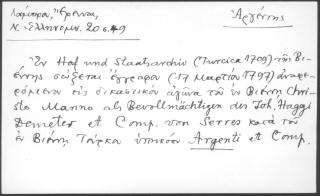 Λαμπρος, Ἔρευναι,
Ἀργέντης
Ν. Ἑλληνομν. 20 σ. 49
Ἐν Haf und Staatsarchiv (Turcica 1709) τῆς Βι-
έννης σώζεται ἔγγραφον (17 Μαρτίου 1797) ἀναφε-
ρόμενον εἰς δικαστικὸν ἀγῶνα τοῦ ἐν Βιέννῃ Chri-
sto Manno als Bevollmächtigen des Joh. Haggi
Demeter et Comp. von Serres κατὰ τοῦ
ἐν Βιέννῃ Τούρκου ὑπηκόου Argenti et Comp.